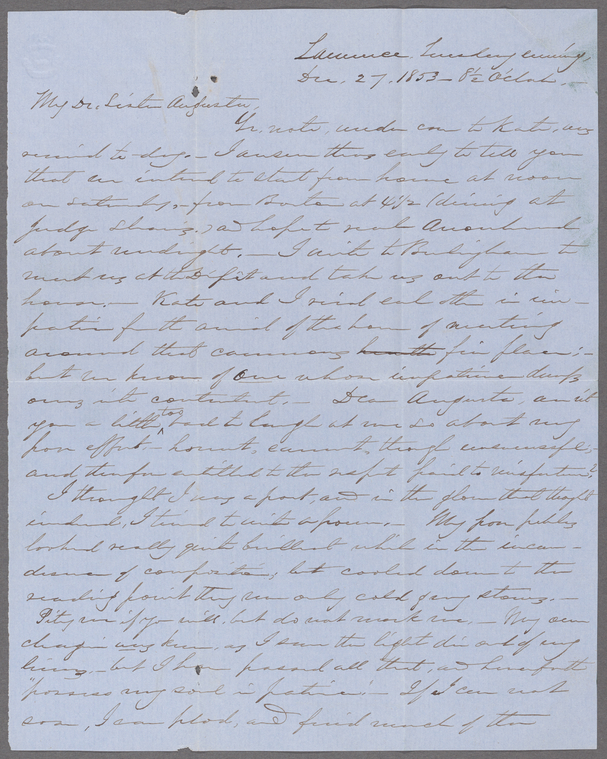 Lawrence, Tuesday evening,
Dec. 27, 1853 - 8½ O'clock. -
My Dr. Sister Augusta,
Yr. note, under cover to Kate, was
received to-day. - I answer thus early to tell you
that we intend to start from home at noon
on Saturday, - from Boston at 4½ (dining at
Judge Shaw's,) and hope to reach Arrowhead
about midnight. - I write to Burbingham to
meet us at the Depot and take us out to the
house. - Kate and I rival each other in im-
patience for the arrival of the hour of meeting
around that capacious hearth fire place; -
but we know of One whose impatience damps
ours into contentment. - Dear Augusta, aint
you a little too bad to laugh at me so about my
poor effort, - honest, earnest, though unsuccessful, -
and therefore entitled to the respect paid to misfortune?
I thought I was a poet and in the glow of that thought
indeed, I tried to write a poem. - My poor pebbles
looked really quite brilliant while in the incan-
descence of composition, but cooled down to the
reading point they were only cold gray stones. -
Pity me if you will, but do not mock me. - My own
chagrin was keen, as I saw the light die out of my
lines, - but I have passed all that, and henceforth
"possess my soul in patience". - If I can not
soar, I can plod, and find much of the